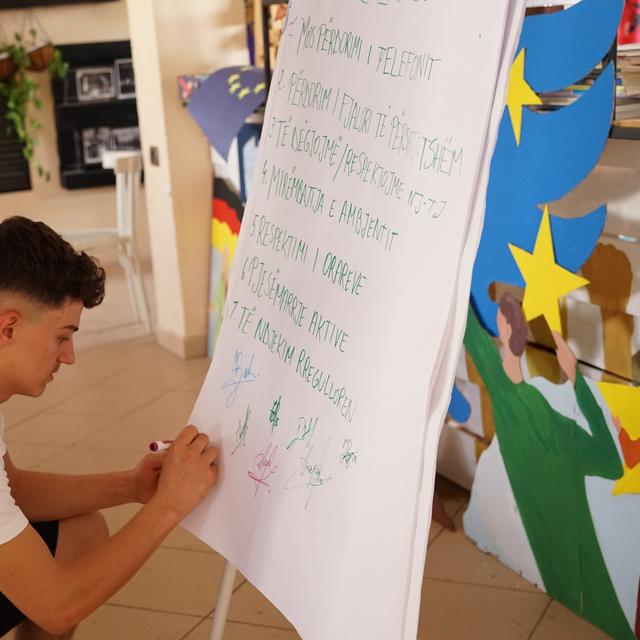 1. MOS PËRDORIMI I TELEFONIT
2. PËRDORIM I FJALORI TË PËRSHTATSHËM
3 TË DËGJOJMË/RESPEKTOJMË NJ-TJ
4. MIRËMBAJTJA E AMBJENTIT
5. RESPEKTIMI I ORAREVE
6 PJESËMARRJE AKTIVE
7 TË NDJEKIM RREGULLOREN